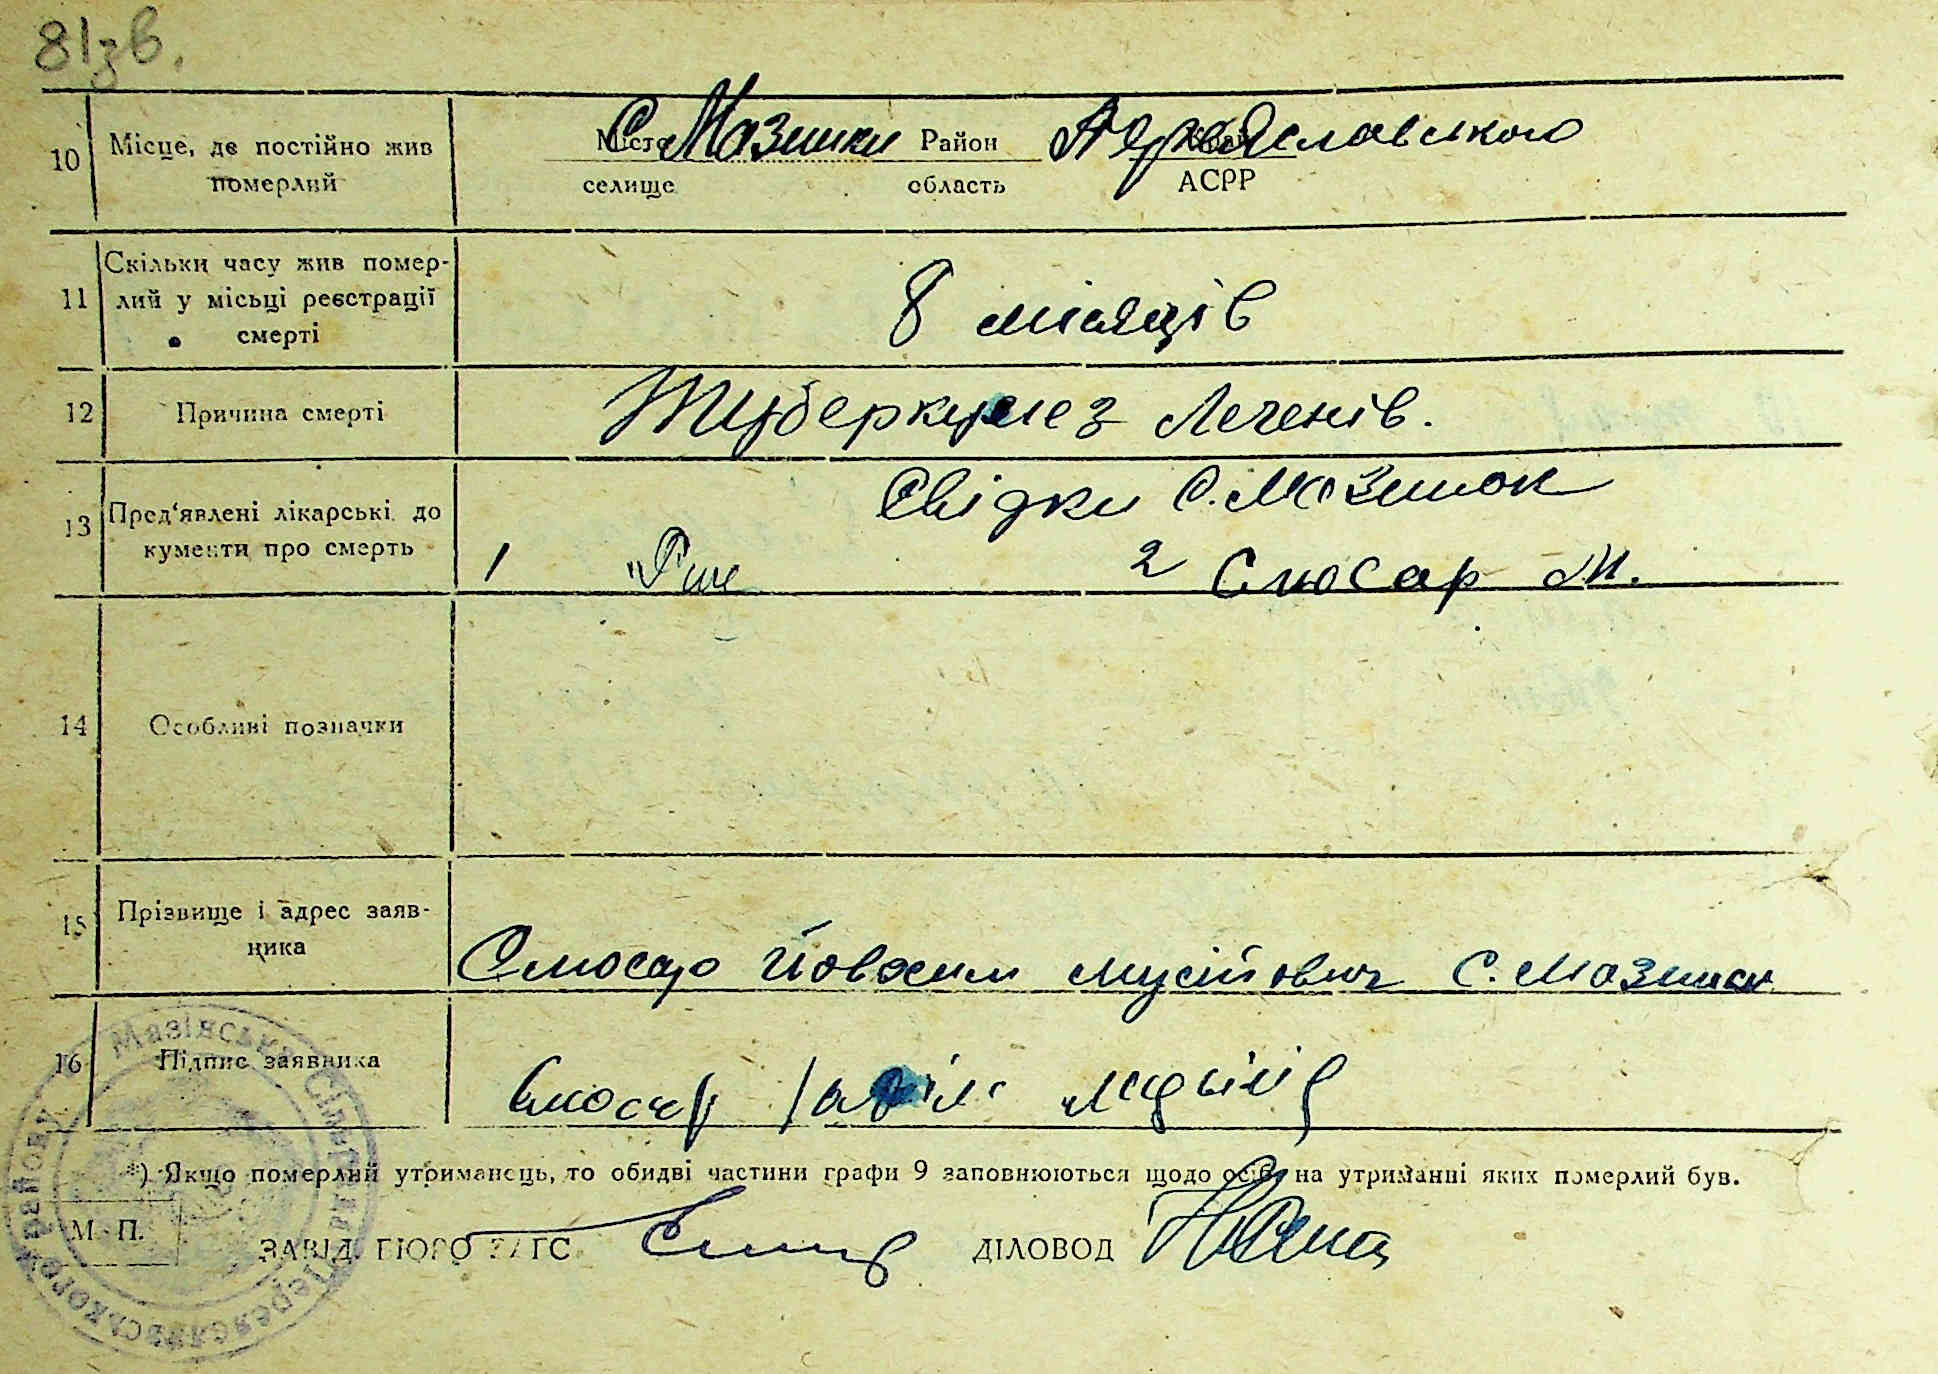 81зв.
10 Місце, де постійно жив померлий
Місто С. Мазинки Район Переяславського Край
селище область АСРР
11 Скільки часу жив помер-
лий у місьці реєстрації
смерті
8 місяців
12 Причина смерті Туберкулез Легенів.
13 Пред'явлені лікарські до
кументи про смерть
Свідки С. Мазинок
1 2 Слюсар М.
14 Особливі позначки
15 Прізвище і адрес заяв-
ника
Слюсар Йовхим мусійович С. Мазинки
16 Підпис заявника
Слюсар
*) Якщо померлий утриманець, то обидві частини графи 9 заповнюються щодо осіб, на утриманні яких померлий був.
М. П.
ЗАВІД. БЮРО ЗАГС ДІЛОВОД
Мазінська сільська Переяславського району